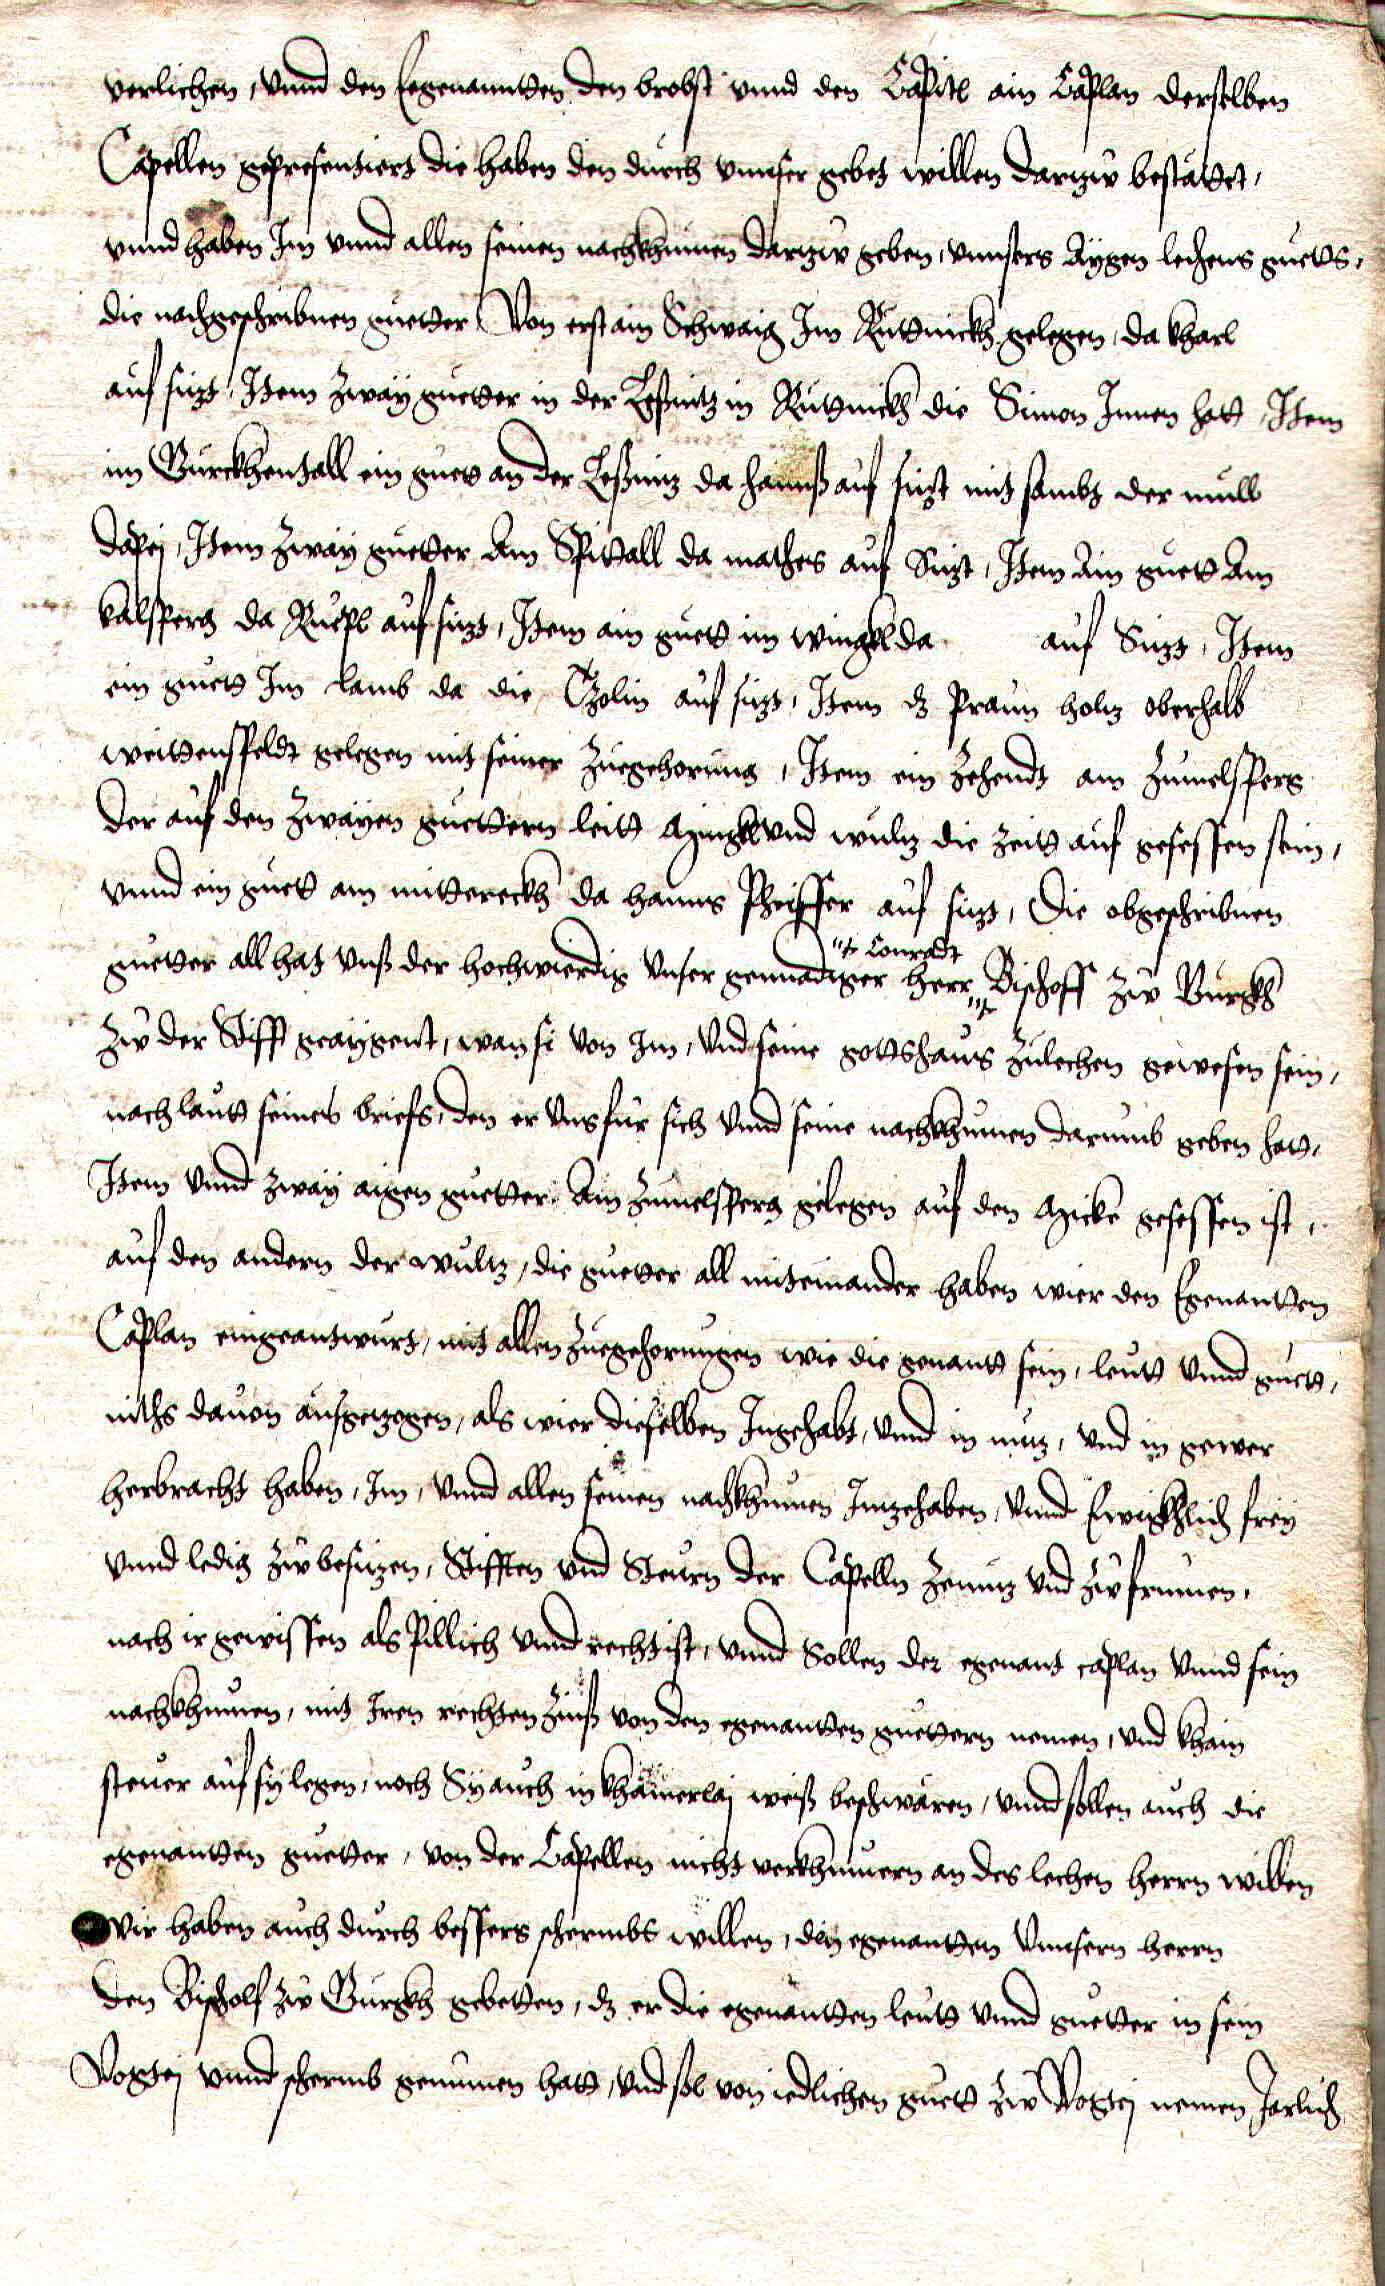 verlichen, vnnd den Eegenannten den brobst vnnd den Capitl ain Caplan derselben
Capellen gepresentiert die haben den durch vnnser gebet willen darzw bestättet,
vnnd haben Im vnnd allen seinen nachkhumen darzw geben, vnnsers Aygen lechens guetts,
die nachgeschribnen guetter Von erst ain Schwaig Im Ruttnickh gelegen, da kharl
auf sizt, Item zway guetter in der Leßnitz in Ruttnickh die Simon Innen hatt, Item
im Gurckhentall ein guet an der Leßnitz da hannß auf sizt mit sambt der mull
dapej, Item zway guetter Am Spittall da mathes auf Sizt, Item Ain guett Am
kalsperg da Ruepl auf sizt, Item ain guett im wingkl da auf Sizt, Item
ein guett Im lamb da die Czolin auf sizt, Item dz praun holz oberhalb
weittensfeldt gelegen mit seiner zuegehorung, Item ein zehendt am Zumelsperg
der auf den zwayen guettern leitt vnd wulz die zeitt auf gesessen sein,
vnnd ein guett am mittereckh da hanns Pheiffer auf sizt, Die obgeschribnen
guetter all hat vnß der hochwierdig vnser gennadiger herr Conradt Bischoff zw Gurckh
zw der Stifft geaygent, wan si von Im, vnd seine gottshaus zulechen gewesen sein,
nach lautt seines briefs, den er vns fur sich vnnd seine nachkhumen darumb geben hatt,
Item vnnd zway aigen guetter Am Zumelsperg gelegen auf den gesessen ist,
auf den andern der wulz, die guetter all miteinander haben wier den Egenantten
Caplan eingeantwurt, mit allen zuegehorungen wie die genantt sein, leutt vnnd guett,
niths dauon ausgezogen, als wier dieselben Ingehabt, vnnd in nuz, vnd in gewer
herbracht haben, Im, vnnd allen seinen nachkhumen Innzehaben, vnnd Ewigkhlich frey
vnnd ledig zw besizen, Stifften vnd Steurn der Capelln zenuz vnd zw frumen,
nach ir gewissen als pillich vnnd recht ist, vnnd Sollen der egenant caplan vnnd sein
nachkhumen, mit Iren rechten zinß von den egenantten guettern nemen, vnd khain
steuer auf sy legen, noch Sy auch in khainerlaj weiß beschwären, vnnd sollen auch die
egenantten guetter, von der Capellen nicht verkhumern an des lechen herrn willen
Wir haben auch durch bessers schermbs willen, den egenantten vnnsern herrn
den Bischolf zw Gurgkh gebetten, dz er die egenantten leutt vnnd guetter in sein
Vogtej vnnd schermb genumen hatt, vnd sol von iedlichen guett zw Vogtej nemen Jarlich